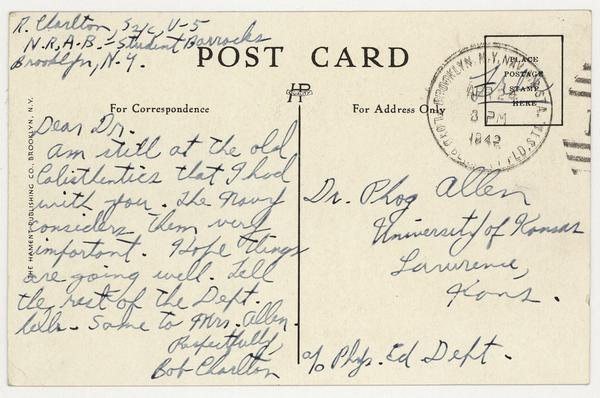 R. Charlton, S2/c, V-5
N.R.A.B. - Student Barracks
Brooklyn, N.Y.
POST CARD
For Correspondence
For Address Only
PLACE
POSTAGE
STAMP
HERE
Free
BROOKLYN, N.Y. NAVY
APR 24
8 PM
1942
THE HAMENT PUBLISHING CO., BROOKLYN, N.Y.
Dear Dr.
Am still at the old
Calisthentics that I had
with you. The Navy
considers them very
important. Hope things
are going well. Tell
the rest of the Dept.
hello - Same to Mrs. Allen.
Respectfully,
Bob Charlton
Dr. Phog Allen
University of Kansas
Lawrence,
Kans.
c/o Phys. Ed Dept.